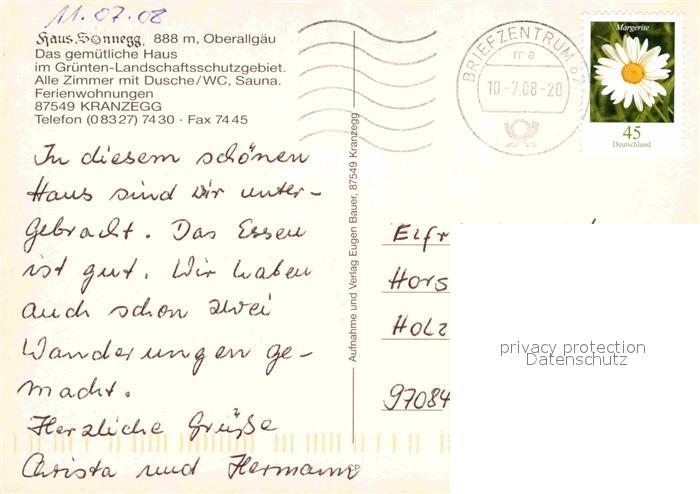 11.07.08
Haus Sonnegg, 888 m, Oberallgäu
Das gemütliche Haus
im Grünten-Landschaftsschutzgebiet.
Alle Zimmer mit Dusche/WC, Sauna.
Ferienwohnungen
87549 KRANZEGG
Telefon (08327) 7430 · Fax 7445
In diesem schönen
Haus sind wir unter-
gebracht. Das Essen
ist gut. Wir haben
auch schon zwei
Wanderungen ge-
macht.
Herzliche Grüße
Christa und Hermann
Aufnahme und Verlag Eugen Bauer, 87549 Kranzegg
BRIEFZENTRUM
10-7.08-20
Margerite
45
Deutschland
Elfr
Hors
Holz
97084
privacy protection
Datenschutz